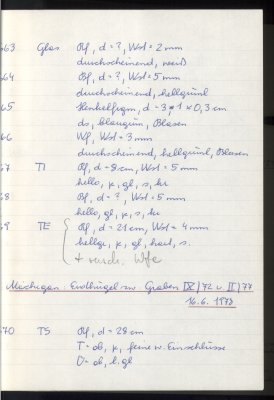 663 Glas Rf, d = ?, Wst = 2 mm
durchscheinend, weiß
64 Bf, d = ?, Wst = 5 mm
durchscheinend, hellgrünl
65 Henkelfrgm, d = 3 × 1 × 0,3 cm
do, blaugrün, Blasen
66 Wf, Wst = 3 mm
durchscheinend, hellgrünl, Blasen
67 TI Rf, d = 9 cm, Wst = 5 mm
68 Bf, d = ?, Wst = 5 mm
69 TE Rf, d = 21 cm, Wst = 4 mm
hellgr, k, gl, hart, s.
+ versch. Wfe
Machegan: Erdhügel sw Graben IX/72 u. II/77
16.6. 1978
670 TS Rf, d = 28 cm
T = ob, k, feine w. Einschlüsse